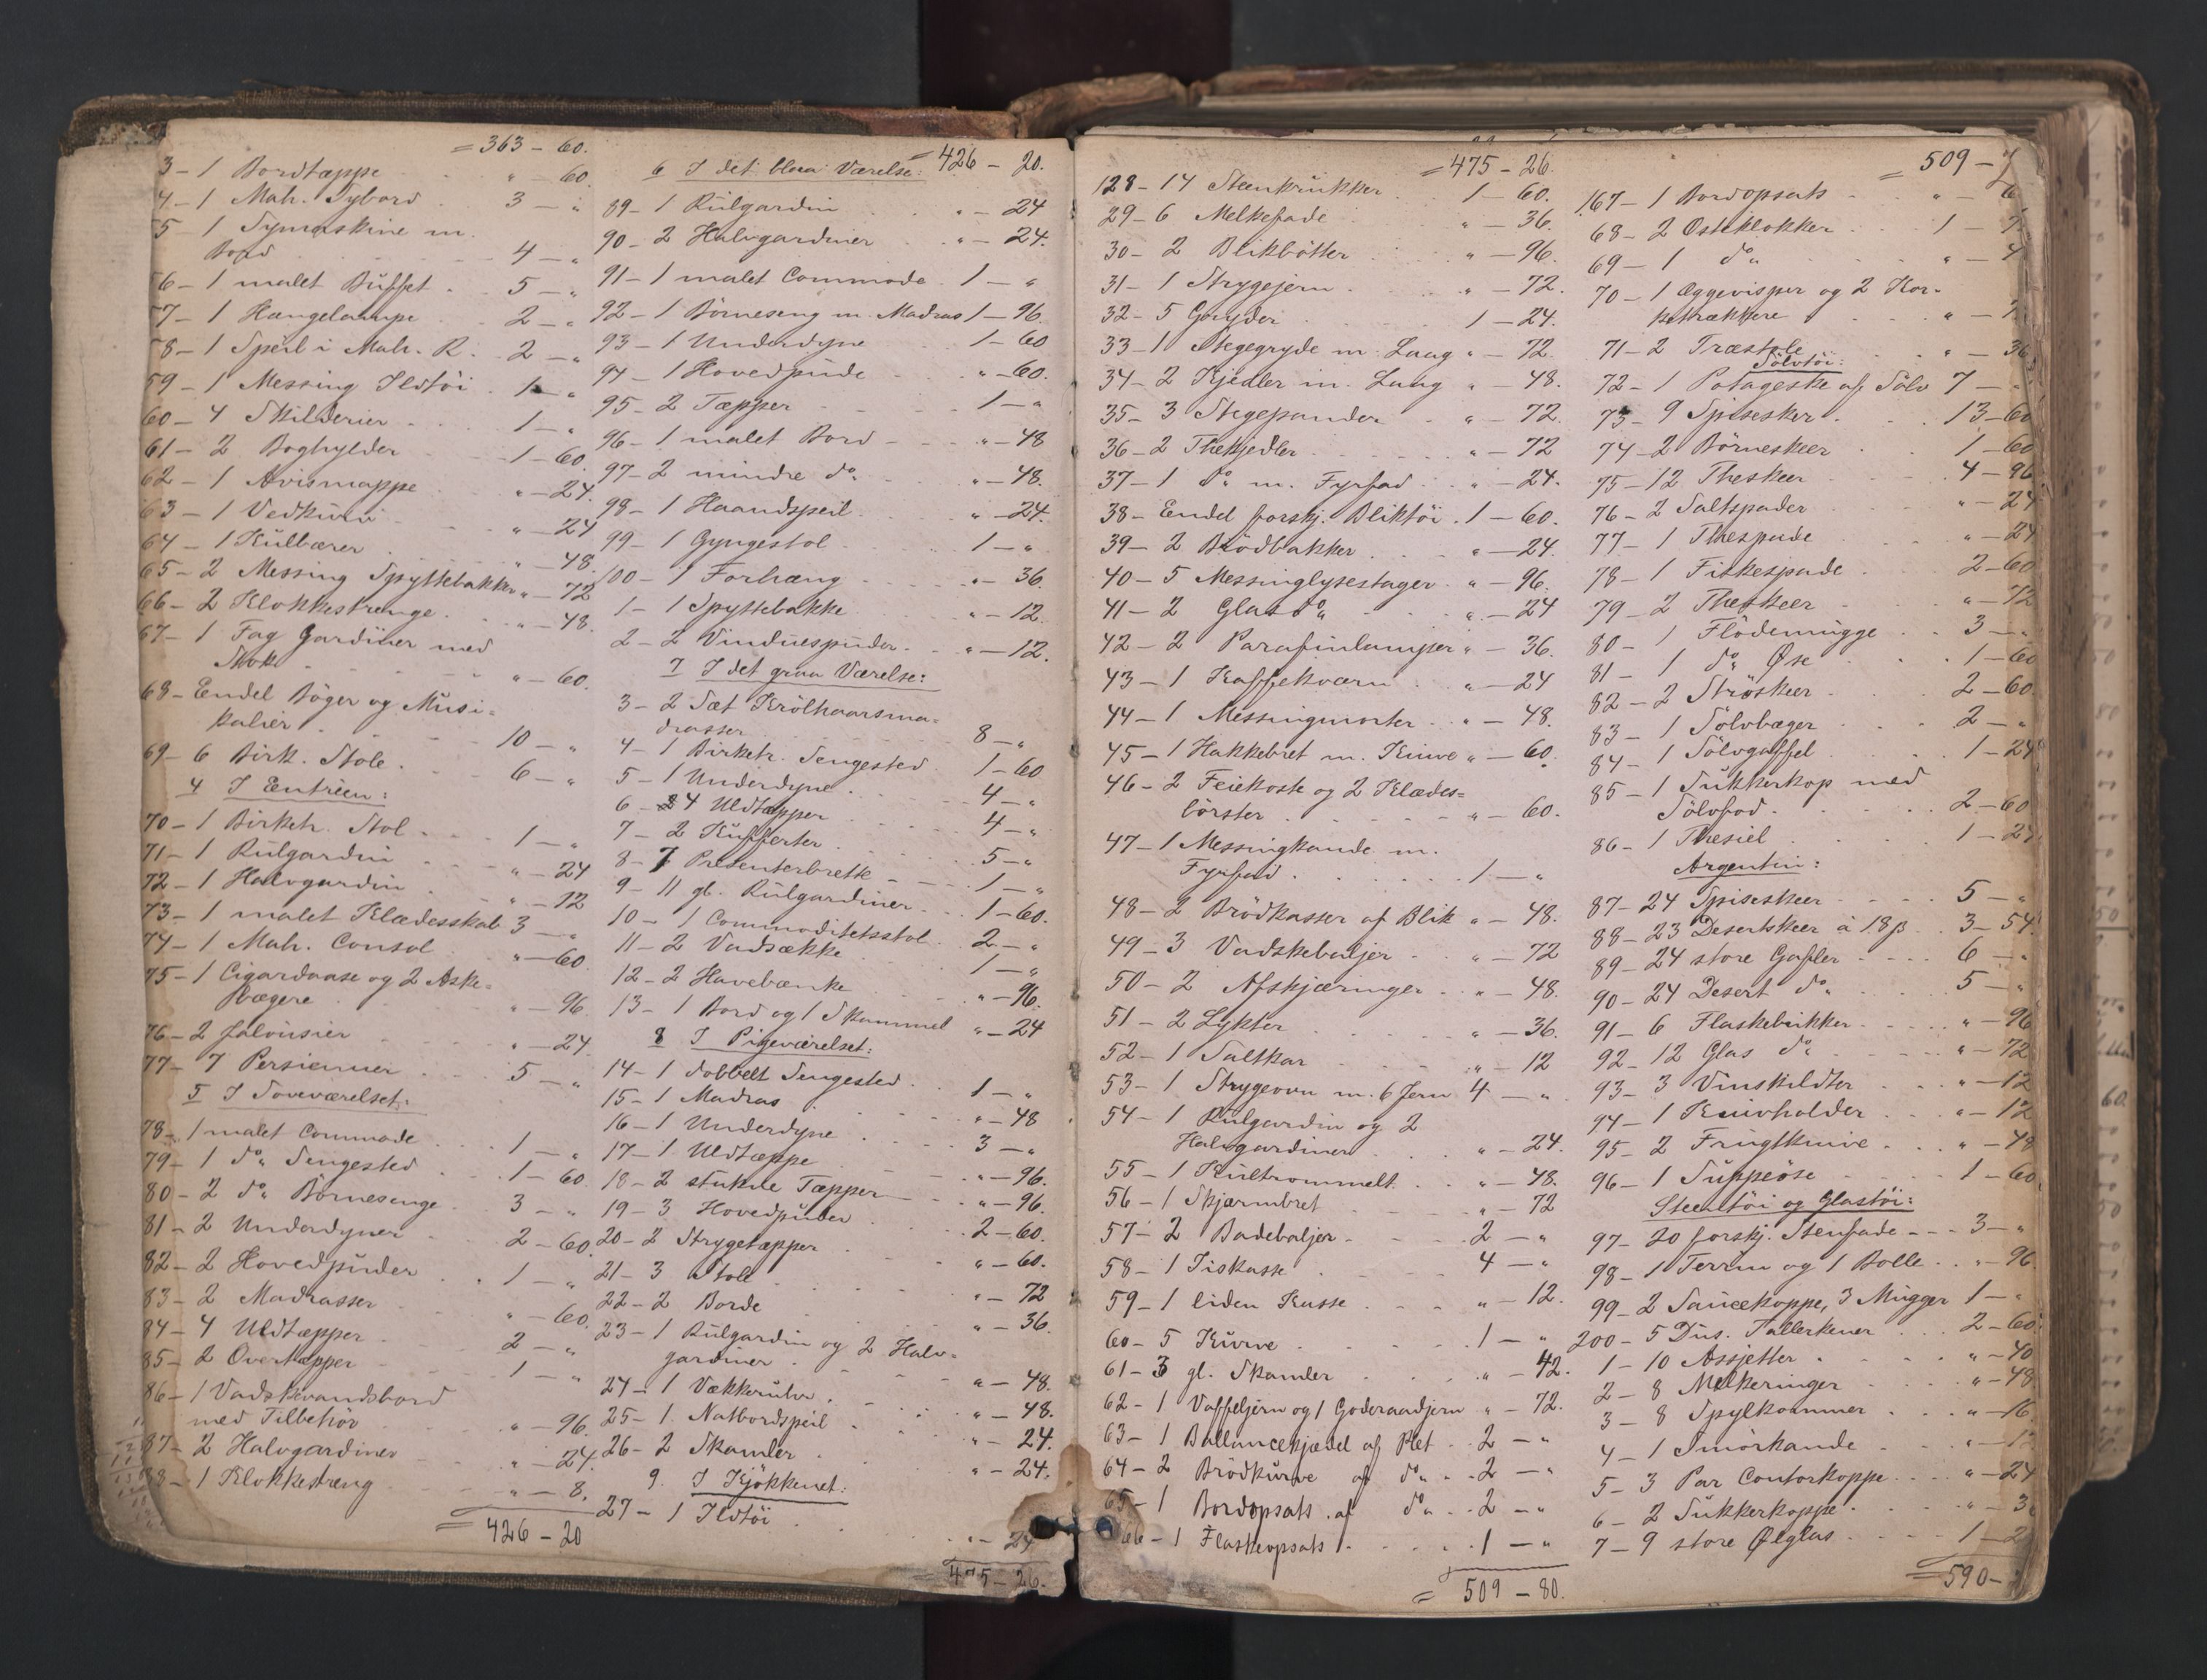 = 363 – 60.
3 – 1 Bordtæppe " – 60.
4 – 1 Mah. Sybord 3 – "
5 – 1 Symaskine m.
Bord 4 – "
56 – 1 malet Buffet 5 – "
57 – 1 Hængelampe 2 – "
58 – 1 Speil i Mah. R. 2 – "
59 – 1 Messing Ildtöi 1 – "
60 – 4 Skilderier 1 – "
61 – 2 Boghylder 1 – 60.
62 – 1 Avismappe " – 24.
63 – 1 Vedkurv " – 24
64 – 1 Kulbærer " – 48.
65 – 2 Messing Spyttebakker " – 72
66 – 2 Klokkestrenge " – 48.
67 – 1 Fag Gardiner med
Stok " – 60.
68 – Endel Böger og Musi=
kalier 10 – "
69 – 6 Birk. Stole 6 – "
4 I Entréen:
70 – 1 Birketr. Stol 1 – "
71 – 1 Rulgardin " – 24
72 – 1 Halvgardin " – 12
73 – 1 malet Klædesskab 3 – "
74 – 1 Mah. Consol " – 60
75 – 1 Cigardaase og 2 Aske=
bægere " – 96.
76 – 2 Jalousier " – 24
77 – 7 Persienner 5 – "
5 I Soveværelset:
78 – 1 malet Commode 1 – "
79 – 1 do Sengested 1 – 60
80 – 2 do Börnesenge 3 – "
81 – 2 Underdyner 2 – 60.
82 – 2 Hovedpuder 1 – "
83 – 2 Madrasser " – 60.
84 – 4 Uldtæpper 2 – "
85 – 2 Overtæpper 1 – "
86 – 1 Vadskevandsbord
med Tilbehör " – 96.
87 – 2 Halvgardiner " – 24.
88 – 1 Klokkestræng " – 8.
= 426 – 20
= 426 – 20.
6 I det blaa Værelse:
89 – 1 Rulgardin " – 24
90 – 2 Halvgardiner " – 24.
91 – 1 malet Commode 1 – "
92 – 1 Börneseng m. Madras 1 – 96
93 – 1 Underdyne 1 – 60
94 – 1 Hovedpude " – 60.
95 – 2 Tæpper 1 – "
96 – 1 malet Bord " – 48
97 – 2 mindre do " – 48.
98 – 1 Haandspeil " – 24.
99 – 1 Gyngestol 1 – "
100 – 1 Forhæng " – 36
1 – 1 Spyttebakke " – 12.
2 – 2 Vinduespuder " – 12.
7 I det graa Værelse:
3 – 2 Sæt Krölhaarsma=
drasser 8 – "
4 – 1 Birketr. Sengested 1 – 60
5 – 1 Underdyne 4 – "
6 – 4 Uldtæpper 4 – "
7 – 2 Kufferter 5 – "
8 – 7 Presenterbrette 1 – "
9 – 11 gl. Rulgardiner 1 – 60.
10 – 1 Commoditetsstol 2 – "
11 – 2 Vadsække 1 – "
12 – 2 Havebænke " – 96.
13 – 1 Bord og 1 Skammel " – 24
8 I Pigeværelset:
14 – 1 dobbelt Sengested 1 – "
15 – 1 Madras " – 48
16 – 1 Underdyne 3 – "
17 – 1 Uldtæppe " – 96.
18 – 2 stukne Tæpper " – 96.
19 – 3 Hovedpuder 2 – 60.
20 – 2 Strygetæpper " – 60.
21 – 3 Stole " – 72
22 – 2 Borde " – 36.
23 – 1 Rulgardin og 2 Halv=
gardiner " – 48.
24 – 1 Vækkeruhr " – 48.
25 – 1 Natbordspeil " – 24.
26 – 2 Skamler " – 24.
9. I Kjökkenet:
27 – 1 Ildtöi " – 24
475 – 26.
= 475 – 26.
128 – 14 Steenkrukker 1 – 60.
29 – 6 Melkefade " – 36.
30 – 2 Blikbötter " – 96.
31 – 1 Strygejern " – 72.
32 – 5 Gryder 1 – 24.
33 – 1 Stegegryde m. Laag " – 72.
34 – 2 Kjedler m. Laag " – 48.
35 – 3 Stegepander " – 72.
36 – 2 Thekjedler " – 72
37 – 1 do m. Fyrfad " – 24.
38 – Endel forskj. Bliktöi 1 – 60.
39 – 2 Brödbakker " – 24.
40 – 5 Messinglysestager " – 96.
41 – 2 Glas do " – 24
42 – 2 Parafinlamper " – 36.
43 – 1 Kaffekværn " – 24
44 – 1 Messingmorter " – 48.
45 – 1 Hakkebret m. Knive " – 60.
46 – 2 Feiekoste og 2 Klædes=
börster " – 60.
47 – 1 Messingkande m.
Fyrfad 1 – "
48 – 2 Brödkasser af Blik " – 48.
49 – 3 Vadskebaljer " – 72
50 – 2 Afskjæringer " – 48.
51 – 2 Lykter " – 36.
52 – 1 Saltkar " – 12
53 – 1 Strygeovn m. 6 Jern 4 – "
54 – 1 Rulgardin og 2
Halvgardiner " – 24.
55 – 1 Kultrommelt " – 48.
56 – 1 Skjærmbret " – 72
57 – 2 Badebaljer 2 – "
58 – 1 Iiskasse 4 – "
59 – 1 liden Kasse " – 12.
60 – 5 Kurve 1 – "
61 – 3 gl. Skamler " – 42.
62 – 1 Vaffeljern og 1 Goderaadjern " – 72.
63 – 1 Ballancekjædel af Plet 2 – "
64 – 2 Brödkurve af do 2 – "
65 – 1 Bordopsats af do 2 – "
66 – 1 Flaskeopsats 1 – "
= 509 – 80.
= 509 –
167 – 1 Bordopsats " –
68 – 2 Osteklokker 1 –
69 – 1 do " – 4
70 – 1 Æggevisper og 2 Kor=
ketrækkere " –
71 – 2 Træstole " – 36
Sölvtöi:
72 – 1 Potageske af Sölv 7 – "
73 – 9 Spiseskeer 13 – 60
74 – 2 Börneskeer 1 – 60
75 – 12 Theskeer 4 – 96
76 – 2 Saltspader " – 24
77 – 1 Thespade " – 24
78 – 1 Fiskespade 2 – 60
79 – 2 Theskeer " – 72
80 – 1 Flödemugge 3 – "
81 – 1 do Øse 1 – 60
82 – 2 Ströskeer 2 – 60.
83 – 1 Sölvbæger 2 – "
84 – 1 Sölvgaffel 1 – 24
85 – 1 Sukkerkop med
Sölvfod 2 – 60
86 – 1 Thesiel 1 – 24
Argentin:
87 – 24 Spiseskeer 5 – "
88 – 23 Desertskeer à 18 ß 3 – 54.
89 – 24 store Gafler 6 – "
90 – 24 Desert do 5 – "
91 – 6 Flaskebrikker " – 96
92 – 12 Glas do " – 72
93 – 3 Vinskildter " – 12
94 – 1 Knivholder " – 12
95 – 2 Frugtknive " – 48
96 – 1 Suppeöse 1 – 60
Steentöi og Glastöi:
97 – 20 forskj. Stenfade 3 – "
98 – 1 Terrin og 1 Bolle " – 96.
99 – 2 Saucekoppe, 3 Mugger 1 – "
200 – 5 Dus. Tallerkener 2 – 60.
1 – 10 Assjetter " – 40
2 – 8 Melkeringer " – 48
3 – 8 Spylkommer " – 16
4 – 1 Smörkande " – 12
5 – 3 Par Contorkoppe " – 24
6 – 2 Sukkerkoppe " – 3
7 – 9 store Ølglas 1 – 2
= 590 –